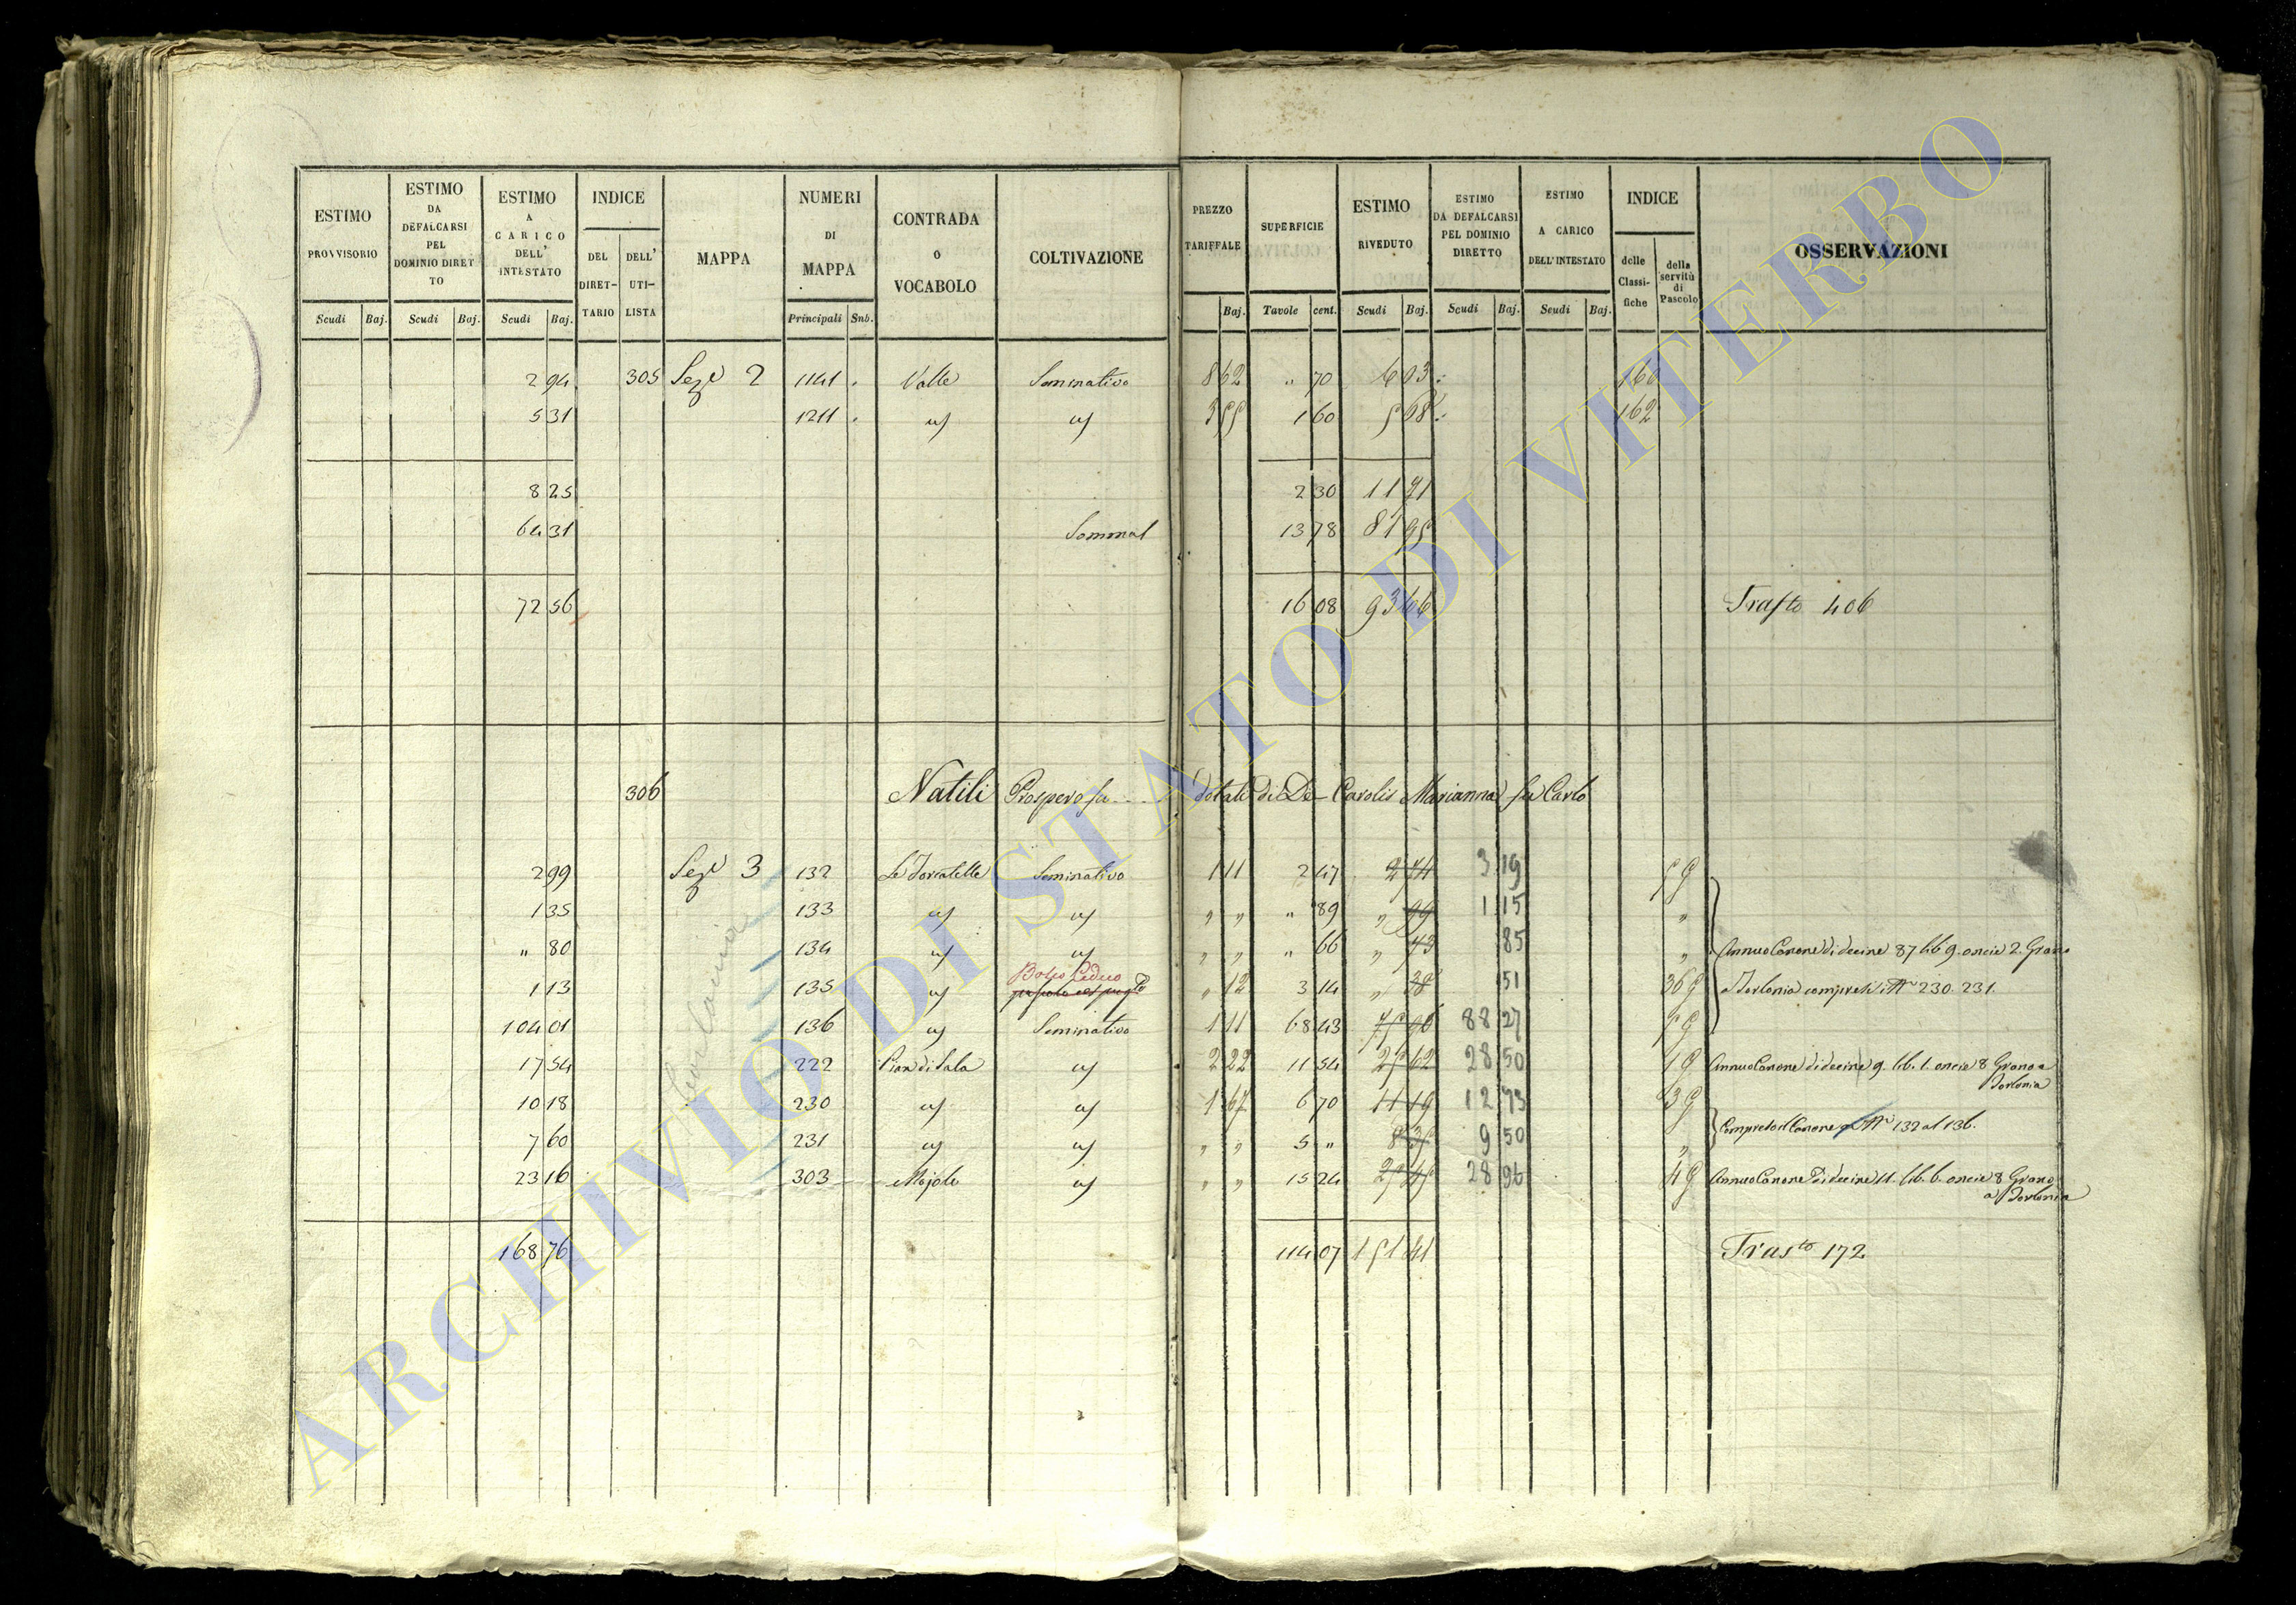 ESTIMO PROVVISORIO | ESTIMO DA DEFALCARSI PEL DOMINIO DIRETTO | ESTIMO A CARICO DELL' INTESTATO | INDICE DEL DIRETTARIO | DELL' UTILISTA | MAPPA | NUMERI DI MAPPA | CONTRADA O VOCABOLO | COLTIVAZIONE | PREZZO TARIFFALE | SUPERFICIE | ESTIMO RIVEDUTO | ESTIMO DA DEFALCARSI PEL DOMINIO DIRETTO | ESTIMO A CARICO DELL'INTESTATO | INDICE delle Classifiche | della servitù di Pascolo | OSSERVAZIONI
Scudi Baj. Scudi Baj. Scudi Baj. Principali Snb. Baj. Tavole cent. Scudi Baj. Scudi Baj. Scudi Baj.
2 94 305 Seze 2 1141 Valle Seminativo 8 62 " 70 6 03 160
5 31 1211 id id 3 55 1 60 5 68 162
8 25 2 30 11 91
64 31 Somma 13 78 81 95
72 56 16 08 93 66 Trasto 406
306 Natili Prospero fu . . . dotali di De Carolis Marianna fu Carlo
2 99 Seze 3 132 Seminativo 1 11 2 47 2 74 3 19 59
1 35 133 id id " " " 89 " 99 1 15 "
" 80 134 id id " " " 66 " 73 85 "
Annuo Canone di decine 87 lib 9. oncie 2. Grano
1 13 135 id Bosco Ceduo " 12 3 14 " 38 51 369
a Torlonia compresi i Nri 230. 231.
104 01 136 id Seminativo 1 11 68 43 75 96 88 27 59
17 54 222 Pian di Sala id 2 22 11 54 25 62 28 50 19 Annuo Canone di decine 9. lib. 1. oncie 8 Grano a Torlonia
10 18 230 id id 1 67 6 70 11 19 12 73 39
Compreso il Canone ai Nri 132 al 136.
7 60 231 id id " " 5 " 8 35 9 50 "
23 16 303 Majole id " " 15 24 25 45 28 96 49 Annuo Canone di decine 11. lib. 6. oncie 8 Grano
a Torlonia
168 76 114 07 151 41 Trasto 172
ARCHIVIO DI STATO DI VITERBO